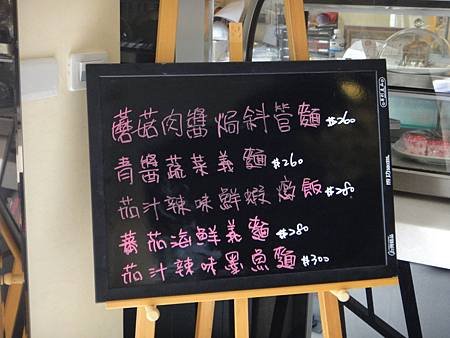 蘑菇肉醬焗斜管麵 $260
青醬蔬菜義麵 $260
茄汁辣味鮮蝦燉飯 $280
蕃茄海鮮義麵 $280
茄汁辣味墨魚麵 $300